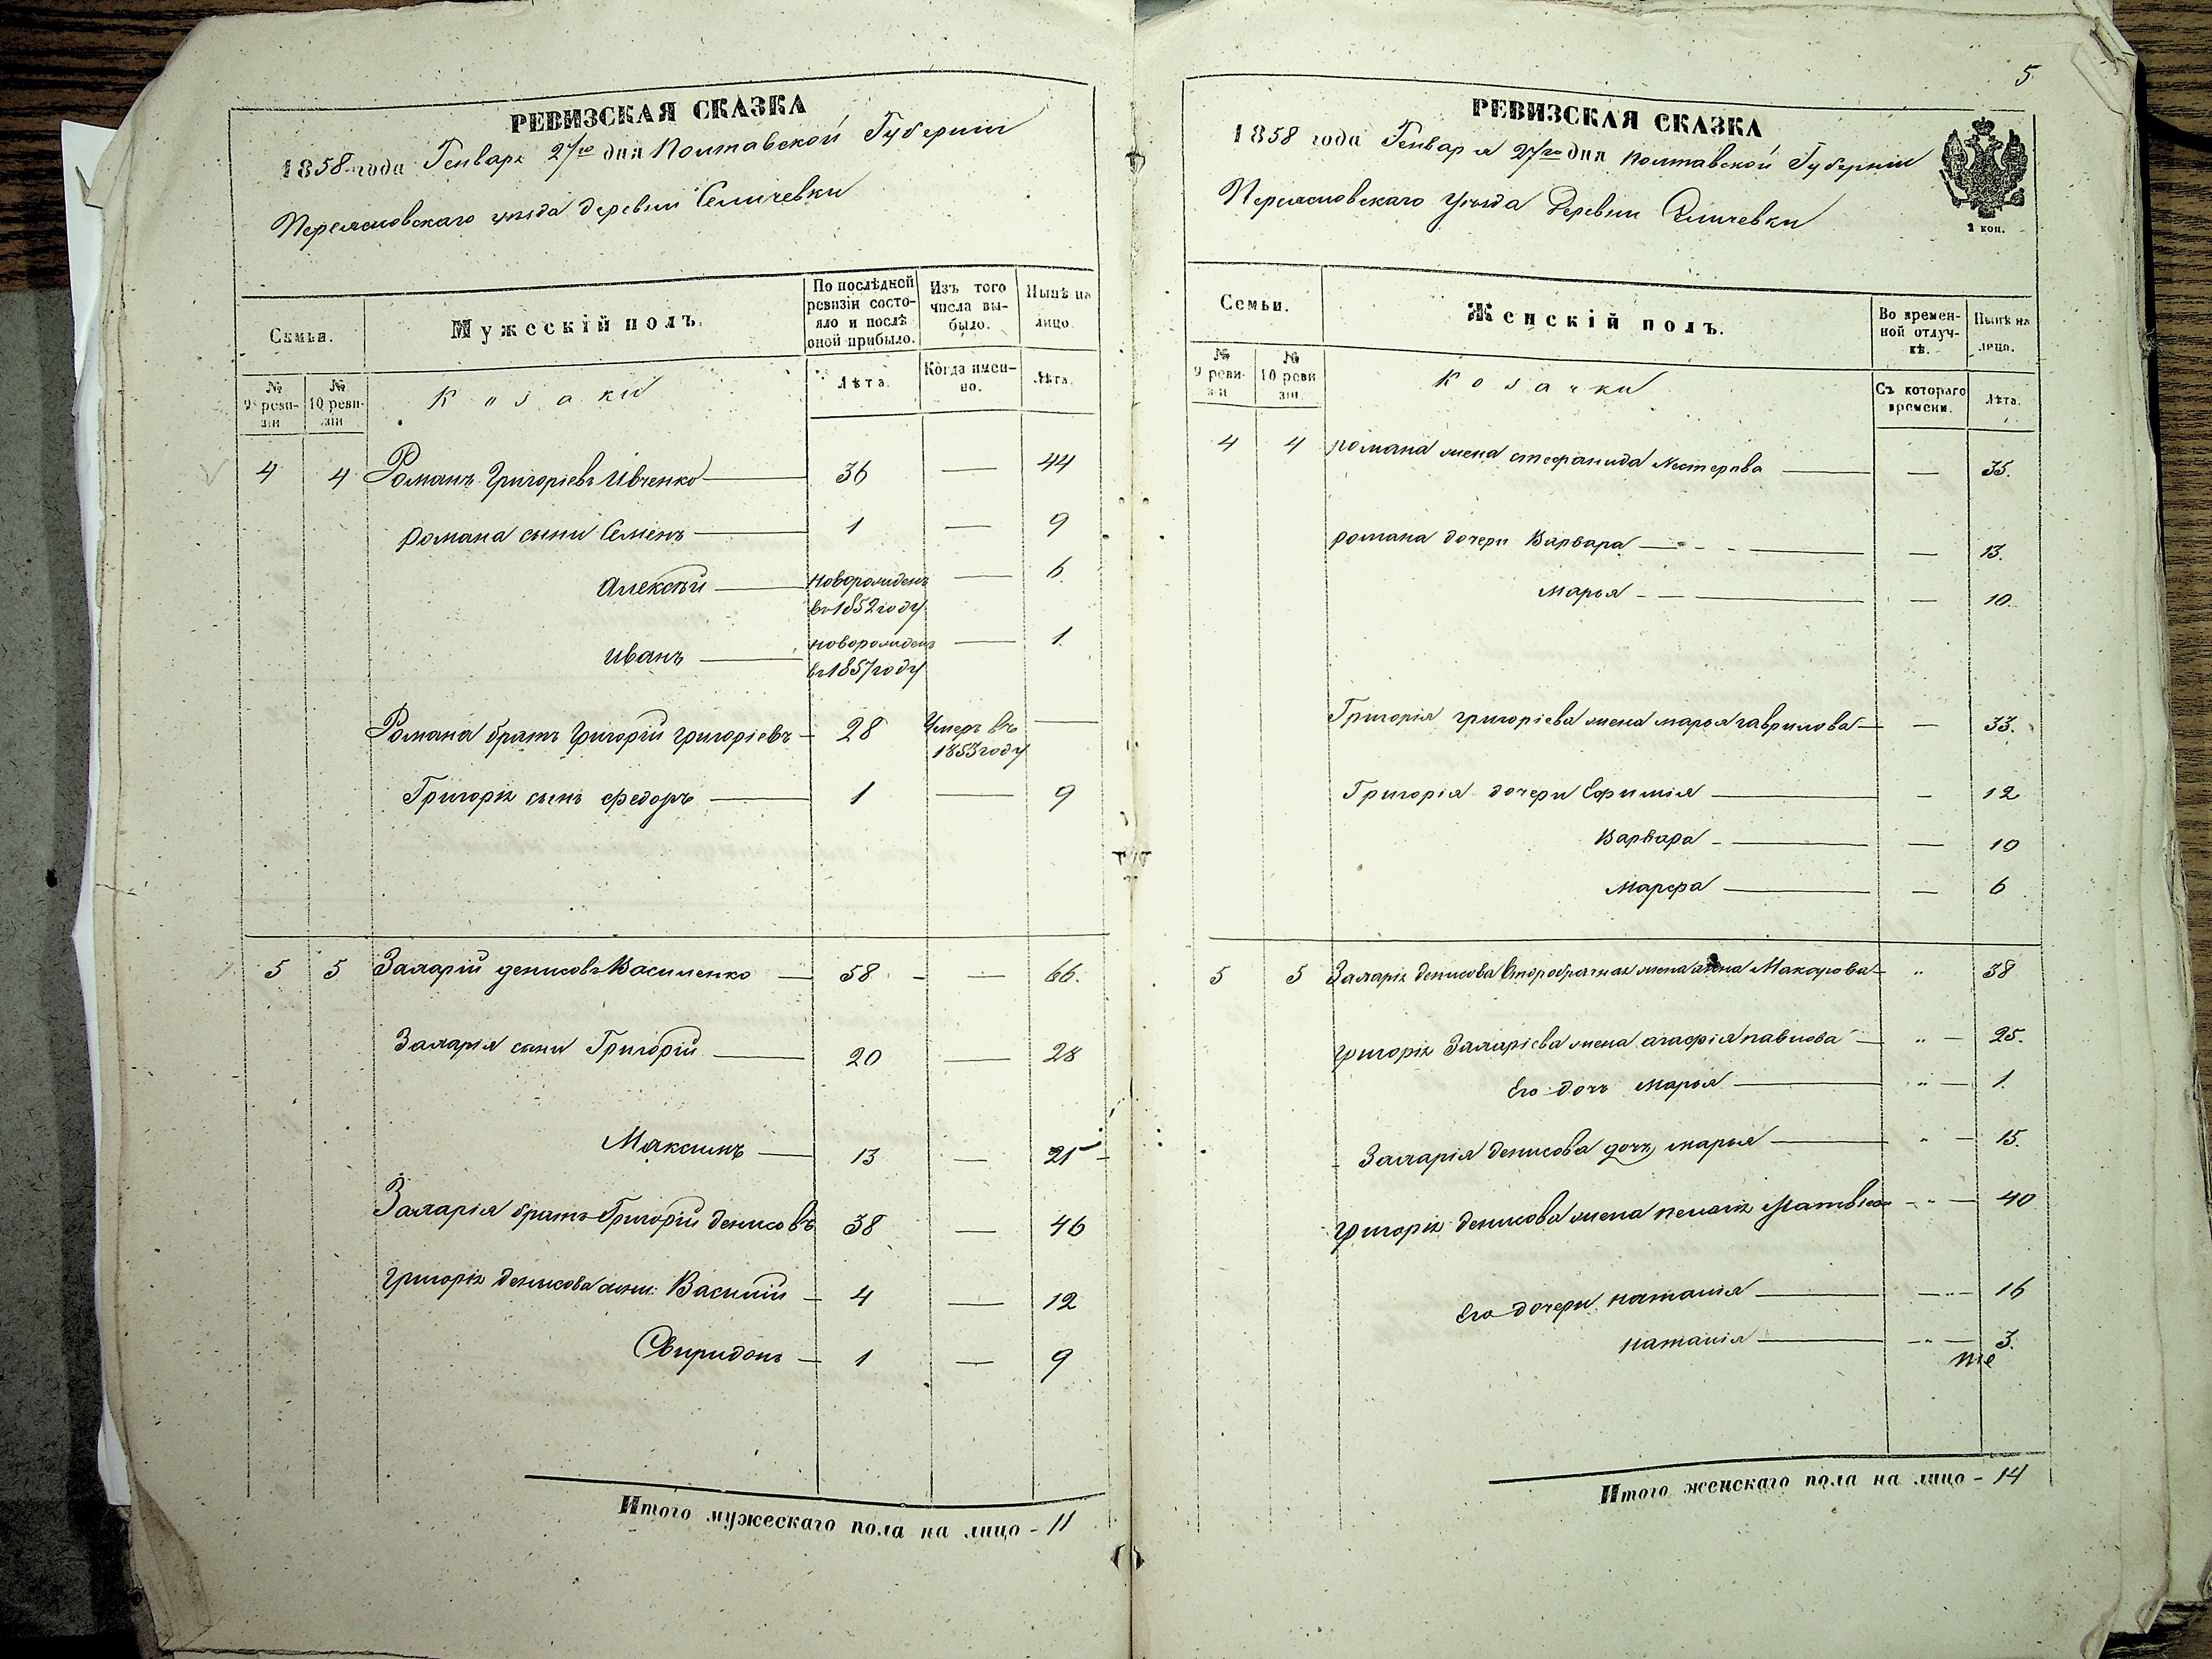 РЕВИЗСКАЯ СКАЗКА
1858 года Генваря 27го дня Полтавской Губернии
Переясловскаго уезда деревни Селичевки
Семьи.
Мужескій полъ.
По послѣдней ревизіи состояло и послѣ оной прибыло.
Изъ того числа выбыло.
Нынѣ на лицо.
№ 9 ревизіи
№ 10 ревизіи
Козаки
Лѣта.
Когда именно.
Лѣта.
4 4 Романъ Григоріевъ Ивченко 36 — 44
Романа сыни Семенъ 1 — 9
Алексѣй новорожденъ — 6
въ 1852 году
Иванъ новорожденъ — 1.
въ 1857 году
Романа братъ Григорій Григоріевъ 28 Умеръ въ —
1853 году
Григорія сынъ Федоръ 1 — 9
5 5 Захарій Денисовъ Василенко — 58 - — 66.
Захарія сыни Григорій 20 — 28
Максимъ 13 — 21
Захарія братъ Григорій Денисовъ 38 — 46
Григорія Денисова сыни: Василій — 4 — 12
Свиридонъ — 1 — 9
Итого мужескаго пола на лицо - 11
5
РЕВИЗСКАЯ СКАЗКА
1858 года Генваря 27го дня Полтавской Губерніи
Переясловскаго Уезда Деревни Селичевки
2 коп.
Семьи.
Женскій полъ.
Во временной отлучкѣ.
Нынѣ на лицо.
№ 9 ревизіи
№ 10 ревизіи
Козачки
Съ котораго времени.
Лѣта.
4 4 Романа жена Стефанида Нестерова — 35.
Романа дочери Варвара — 13.
Марья — 10.
Григорія Григоріева жена Марья Гаврилова — 33.
Григорія дочери Ефимія — 12
Варвара — 10
Марфа — 6
5 5 Захарія Денисова второбрачная жена Анна Макарова " 38
Григорія Захаріева жена Агафія Павлова " — 25.
Его дочь Марья " — 1.
Захарія Денисова дочь Марья " — 15.
Григорія Денисова жена Пелагія Матвѣева - " — 40
Его дочери Наталія — " — 16
Наталія — " — 3.
Итого женскаго пола на лицо - 14